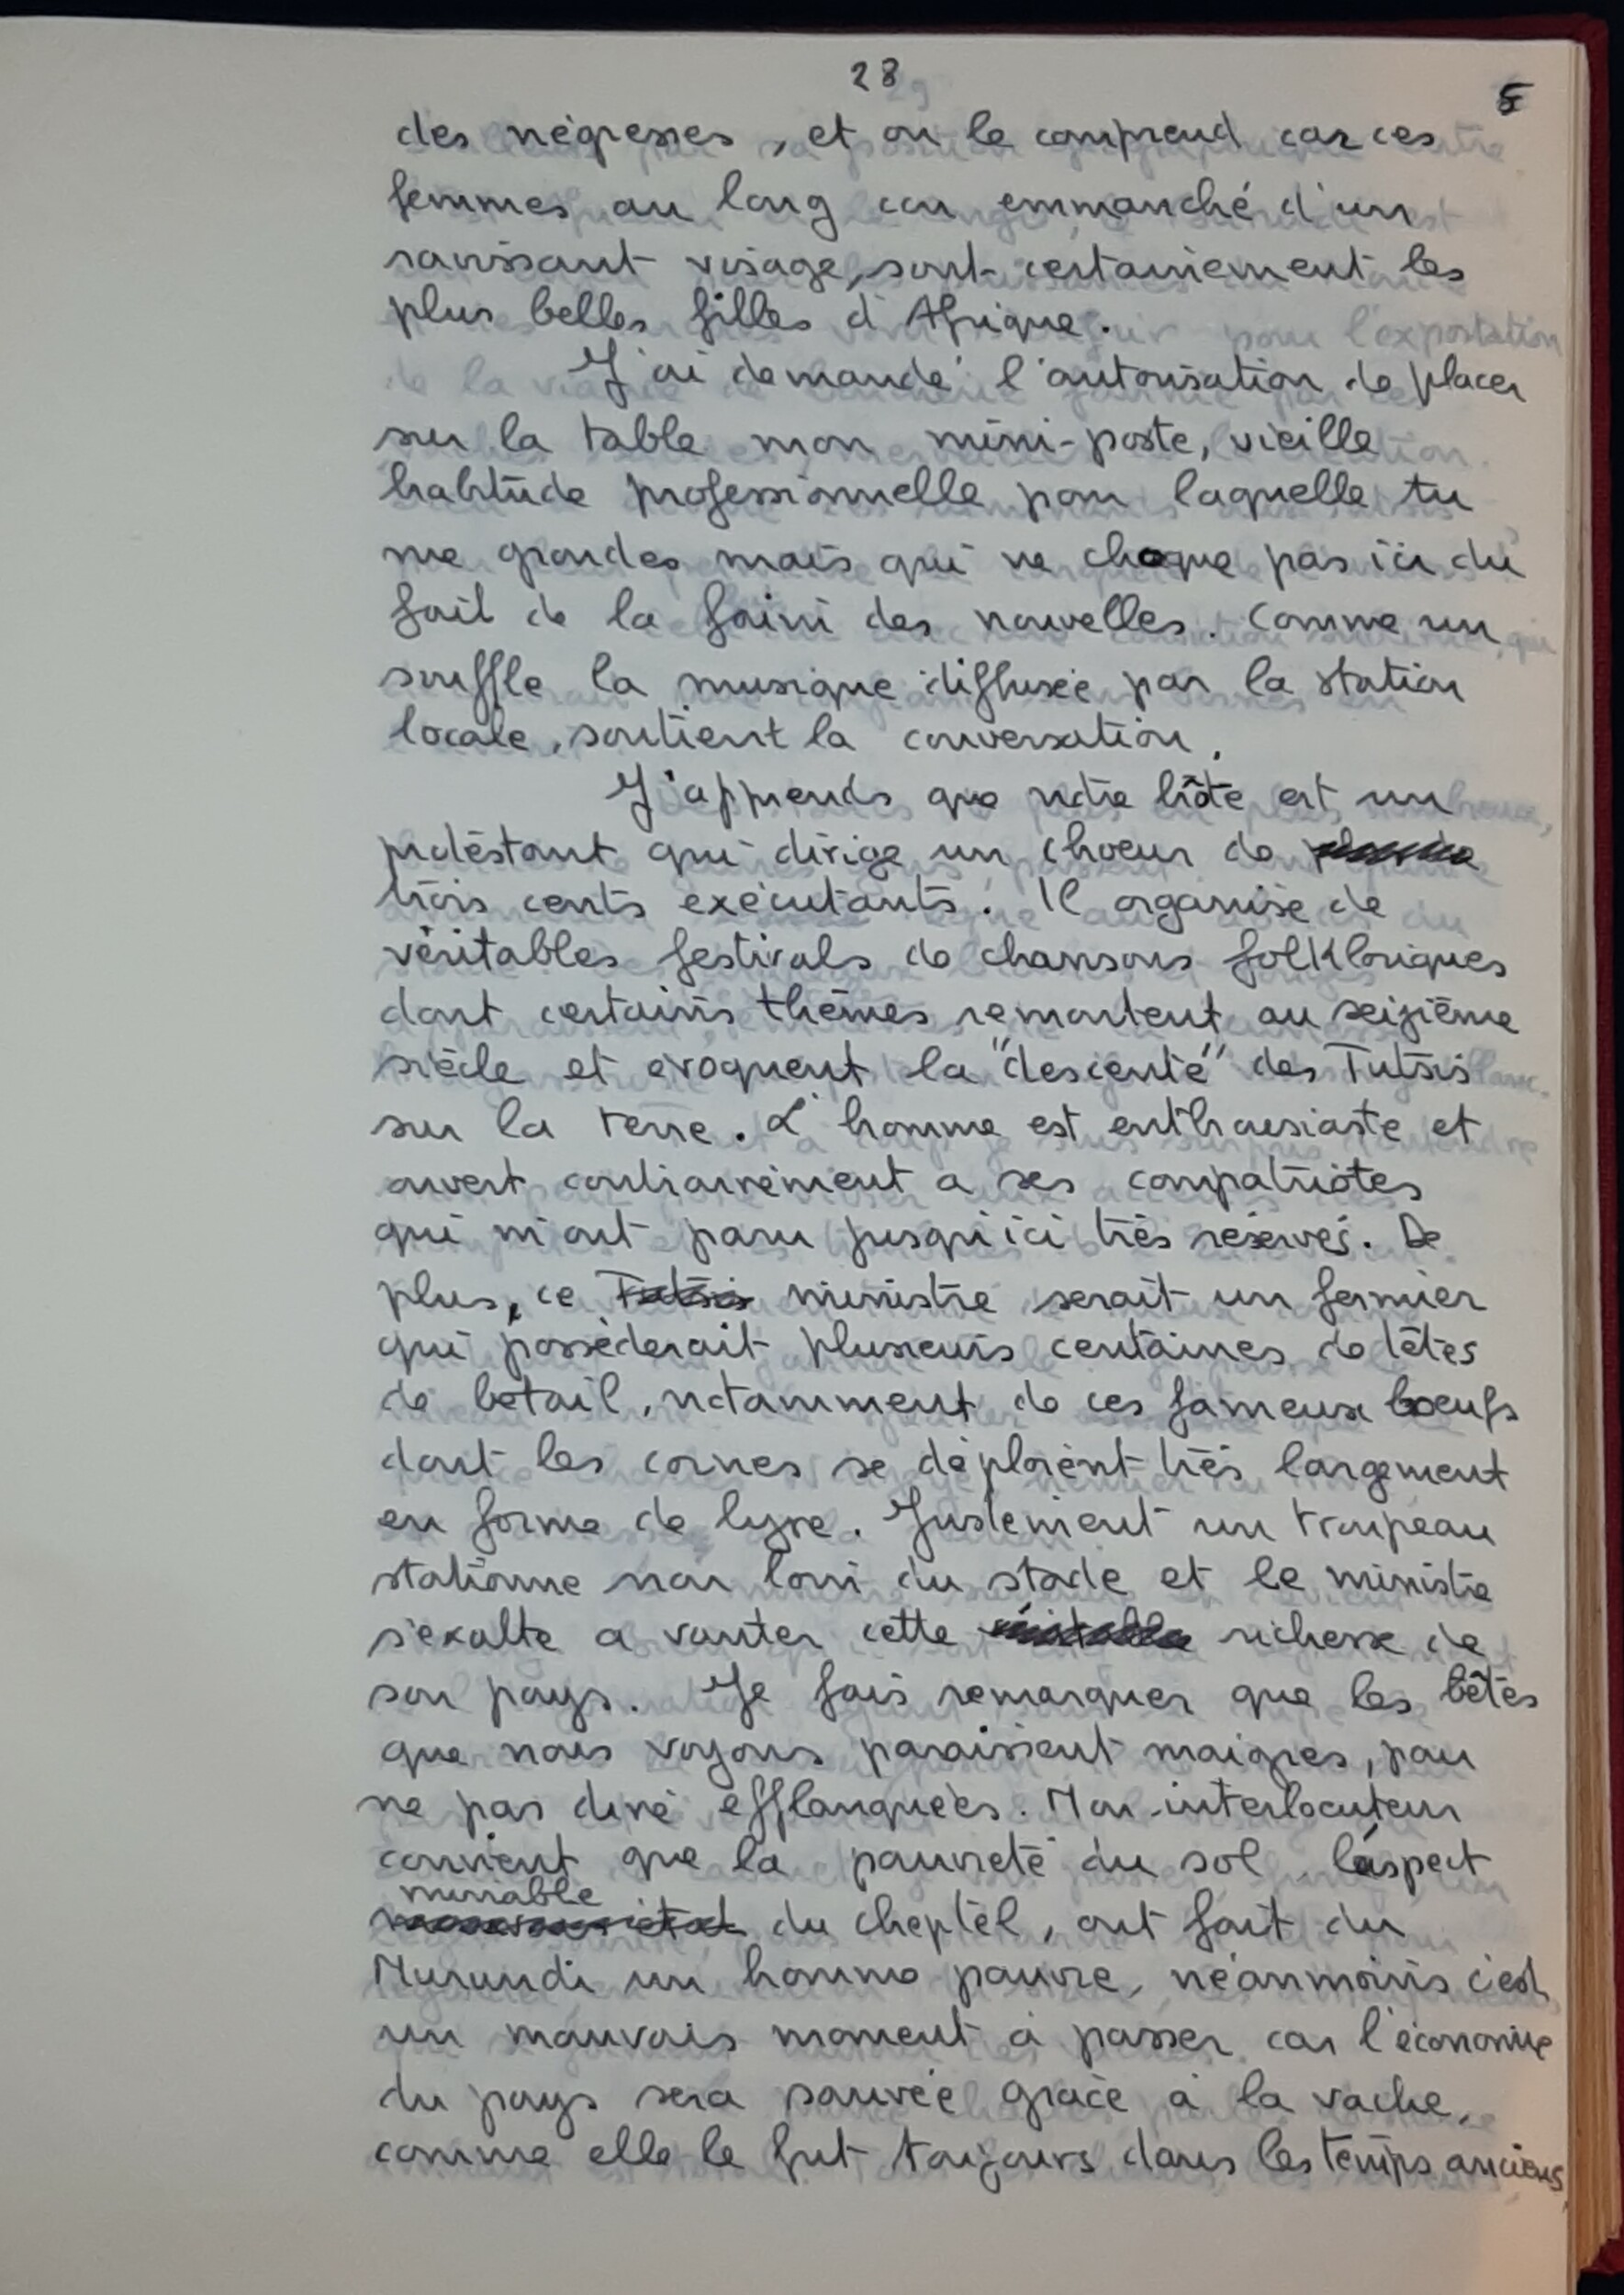 28
5
des négresses, et on le comprend car ces
femmes au long cou emmanché d'un
ravissant visage, sont certainement les
plus belles filles d'Afrique.
J'ai demandé l'autorisation de placer
sur la table mon mini-poste, vieille
habitude professionnelle pour laquelle tu
me grondes mais qui ne choque pas ici du
fait de la faim des nouvelles. Comme un
souffle la musique diffusée par la station
locale, soutient la conversation.
J'apprends que notre hôte est un
protestant qui dirige un choeur de
trois cents exécutants. Il organise de
véritables festivals de chansons folkloriques
dont certains thèmes remontent au seizième
siècle et évoquent la "descente" des Tutsis
sur la terre. L'homme est enthousiaste et
ouvert contrairement a ses compatriotes
qui m'ont paru jusqu'ici très réservés. De
plus, ce Tutsis ministre serait un fermier
qui possèderait plusieurs centaines de têtes
de bétail, notamment de ces fameux boeufs
dont les cornes se déploient très largement
en forme de lyre. Justement un troupeau
stationne non loin du stade et le ministre
s'exalte a vanter cette véritable richesse de
son pays. Je fais remarquer que les bêtes
que nous voyons paraissent maigres, pour
ne pas dire efflanquées. Mon interlocuteur
convient que la pauvreté du sol, l'aspect
minable
du cheptel, ont fait du
Murundi un homme pauvre, néanmoins c'est
un mauvais moment à passer car l'économie
du pays sera sauvée grace à la vache,
comme elle le fut toujours dans les temps anciens,